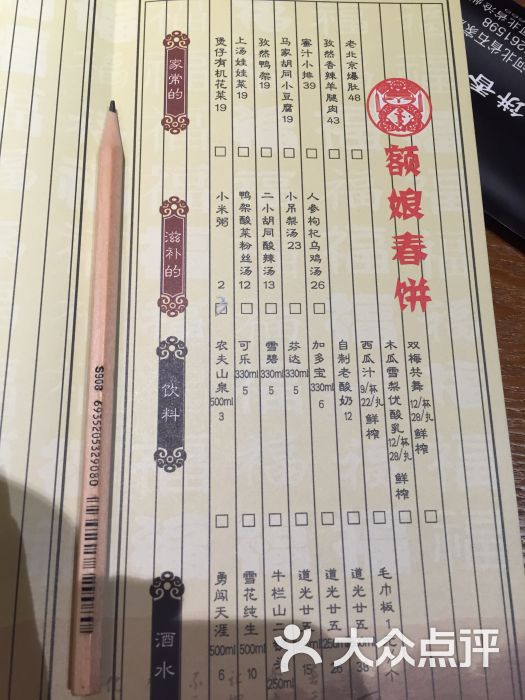 额娘春饼
家常的
老北京爆肚48
孜然香辣羊腿肉43
蜜汁小排39
马家胡同小豆腐19
孜然鸭架19
上汤娃娃菜19
煲仔有机花菜19
滋补的
人参枸杞乌鸡汤26
小吊梨汤23
二小胡同酸辣汤13
鸭架酸菜粉丝汤12
小米粥 2
饮料
双梅共舞 12/杯 28/扎 鲜榨
木瓜雪梨优酸乳 12/杯 28/扎 鲜榨
西瓜汁 9/杯 22/扎 鲜榨
自制老酸奶 12
加多宝 330ml 6
芬达 330ml 5
雪碧 330ml 5
可乐 330ml 5
农夫山泉 500ml 3
酒水
毛巾板1
道光廿五
道光廿五 250m 28
道光廿五 15
牛栏山二 250m
雪花纯生 500ml 10
勇闯天涯 500ml 6
S908 6935205329080
饼香
河北省石家
大众点评